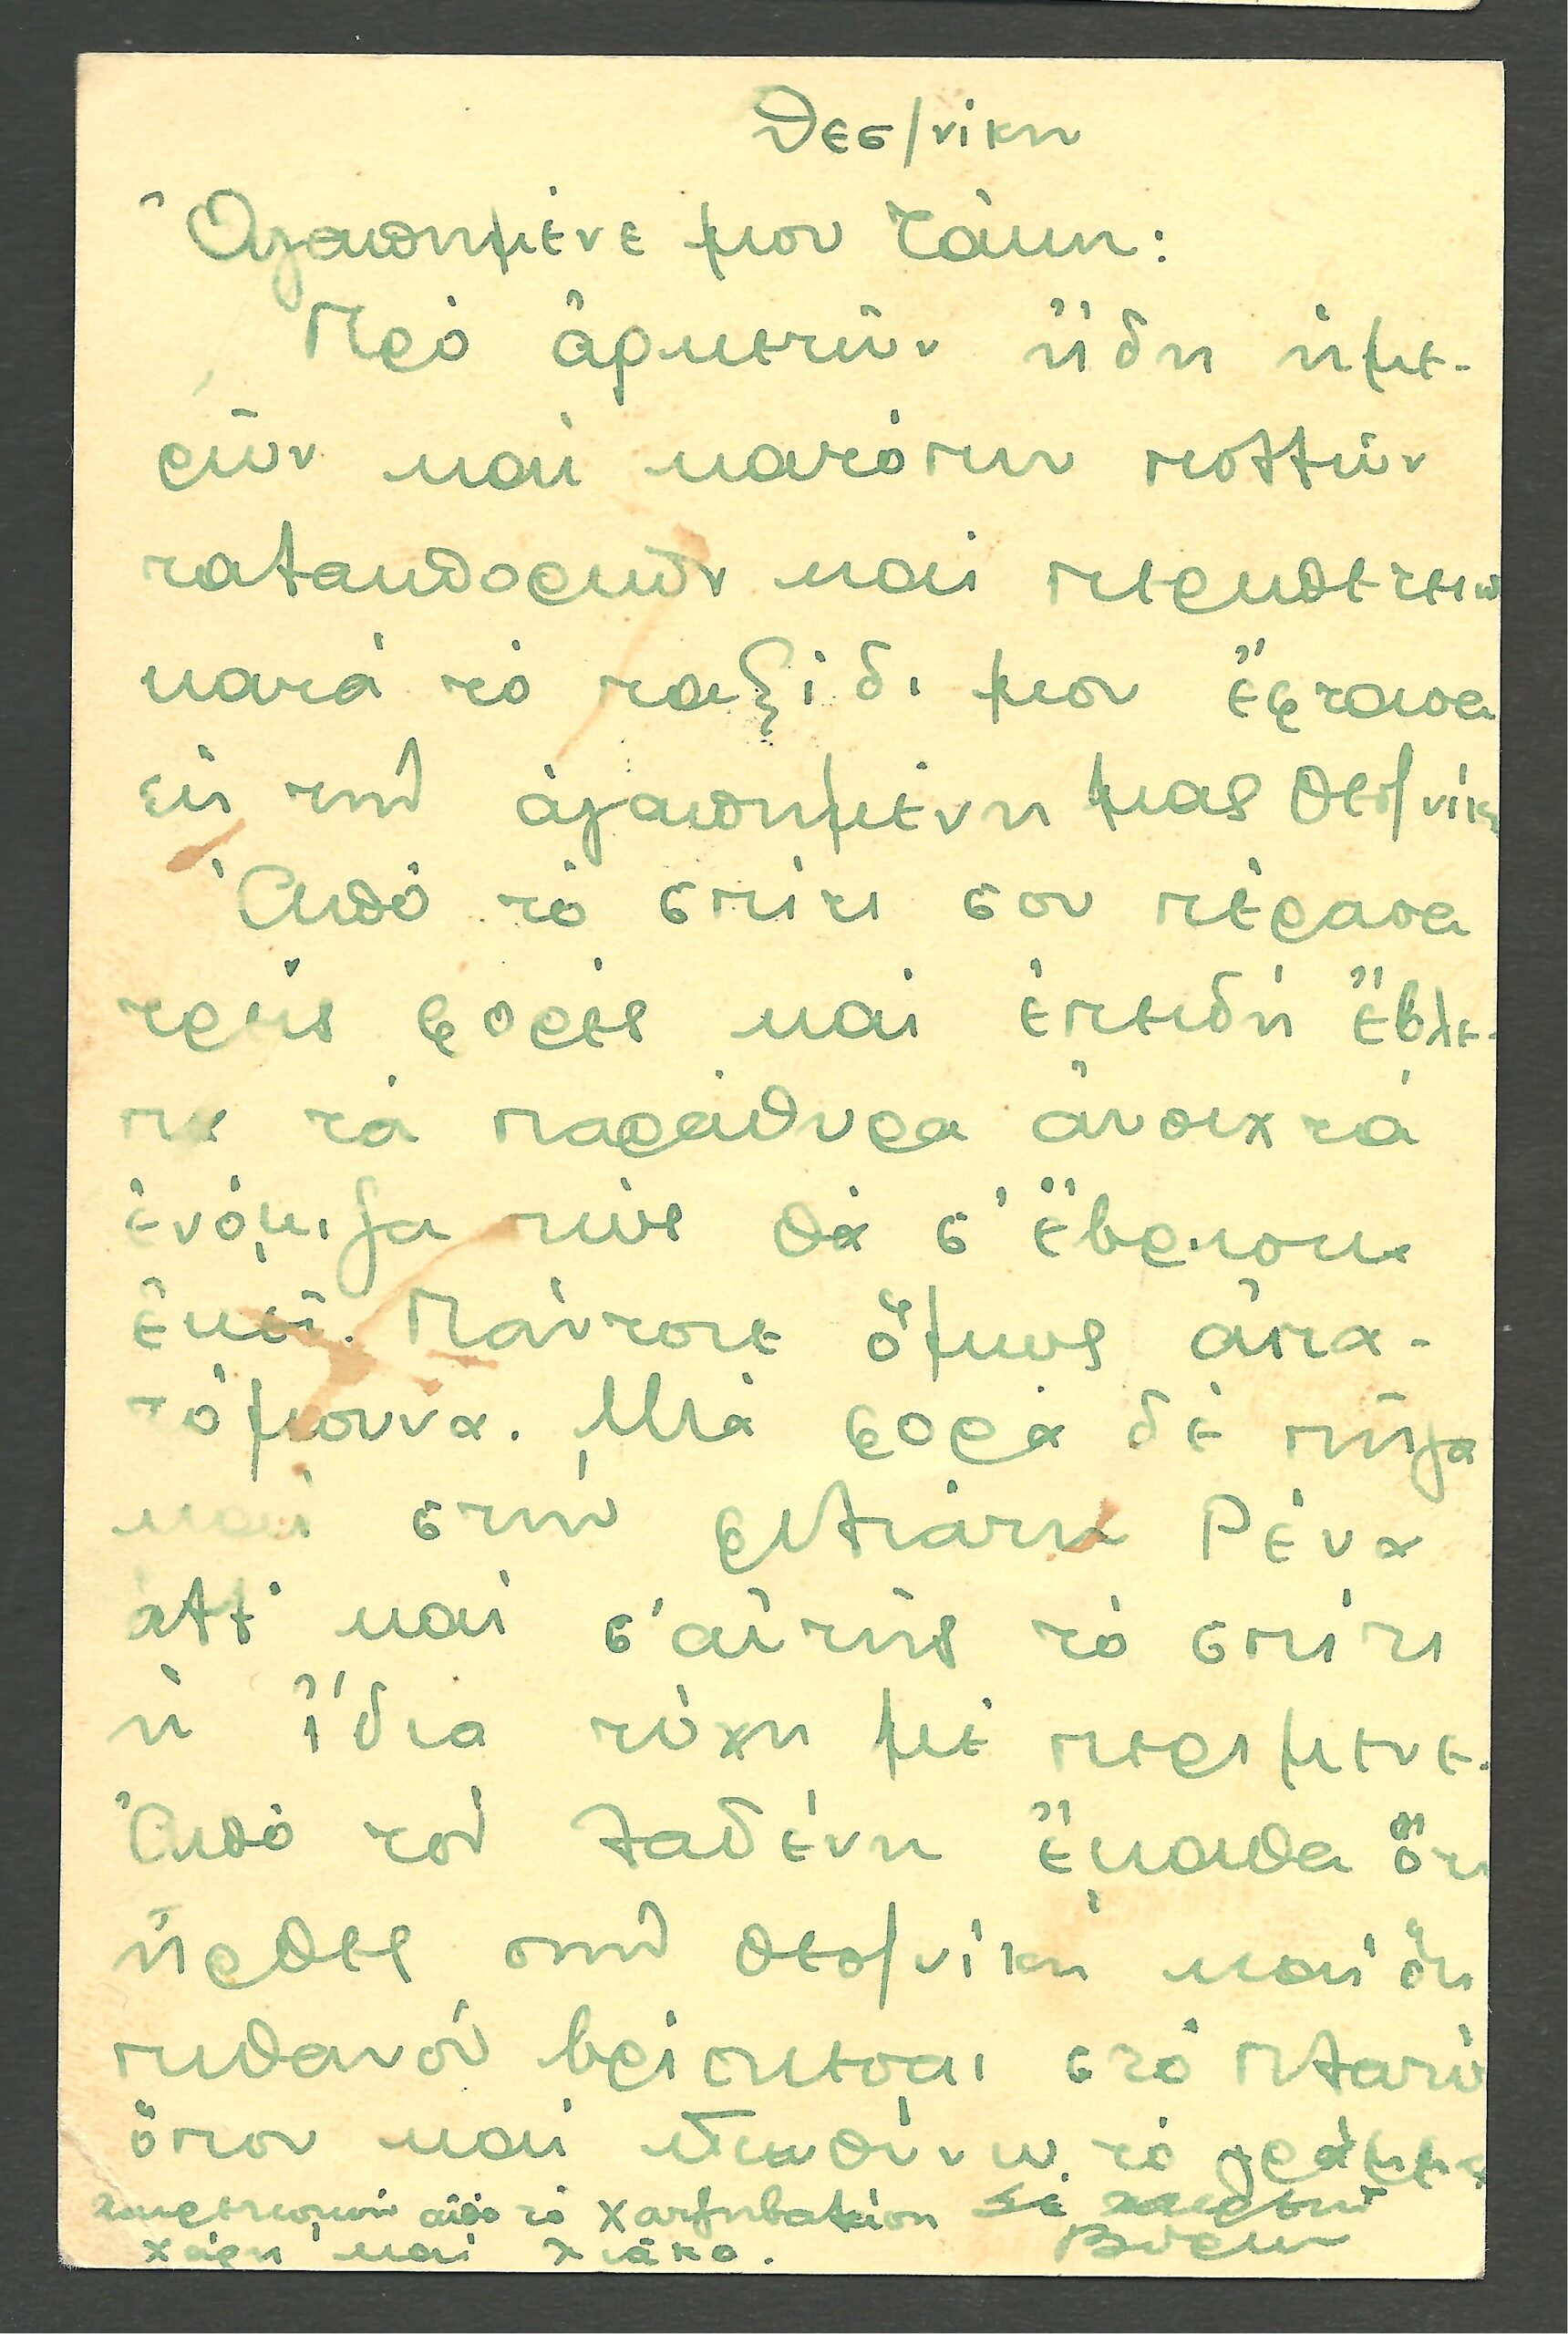 Θεσ/νίκη
Ἀγαπημένε μου Τάκη:
Πρό ἀρκετῶν ἤδη ἡμε-
ρῶν καί κατόπιν πολλῶν
ταλαιποριῶν καί περιπετειῶ
κατά τό ταξίδι μου ἔφτασα
εἰς τήν ἀγαπημένη μας Θεσ/νίκη
Ἀπό τό σπίτι σου πέρασα
τρεῖς φορές καί ἐπειδή ἔβλε-
πα τά παράθυρα ἀνοιχτά
ἐνόμιζα πώς θά σ' ἔβρισκα
ἐκεῖ. Πάντοτε ὅμως ἀπα-
τόμουνα. Μιά φορά δέ πῆγα
καί στήν φιλιάτη Ρένα
ἀλλ' καί σ' αὐτῆς τό σπίτι
ἡ ἴδια τύχη μέ περίμενε.
Ἀπό τόν Λαδένη ἔμαθα ὅτι
ἦρθες στήν Θεσ/νίκη καί ὅτι
πιθανόν βρίσκεσαι στό Πλατύ
ὅπου καί διευθύνω τό γράμμα
ἀπό τό
Χάρη καί